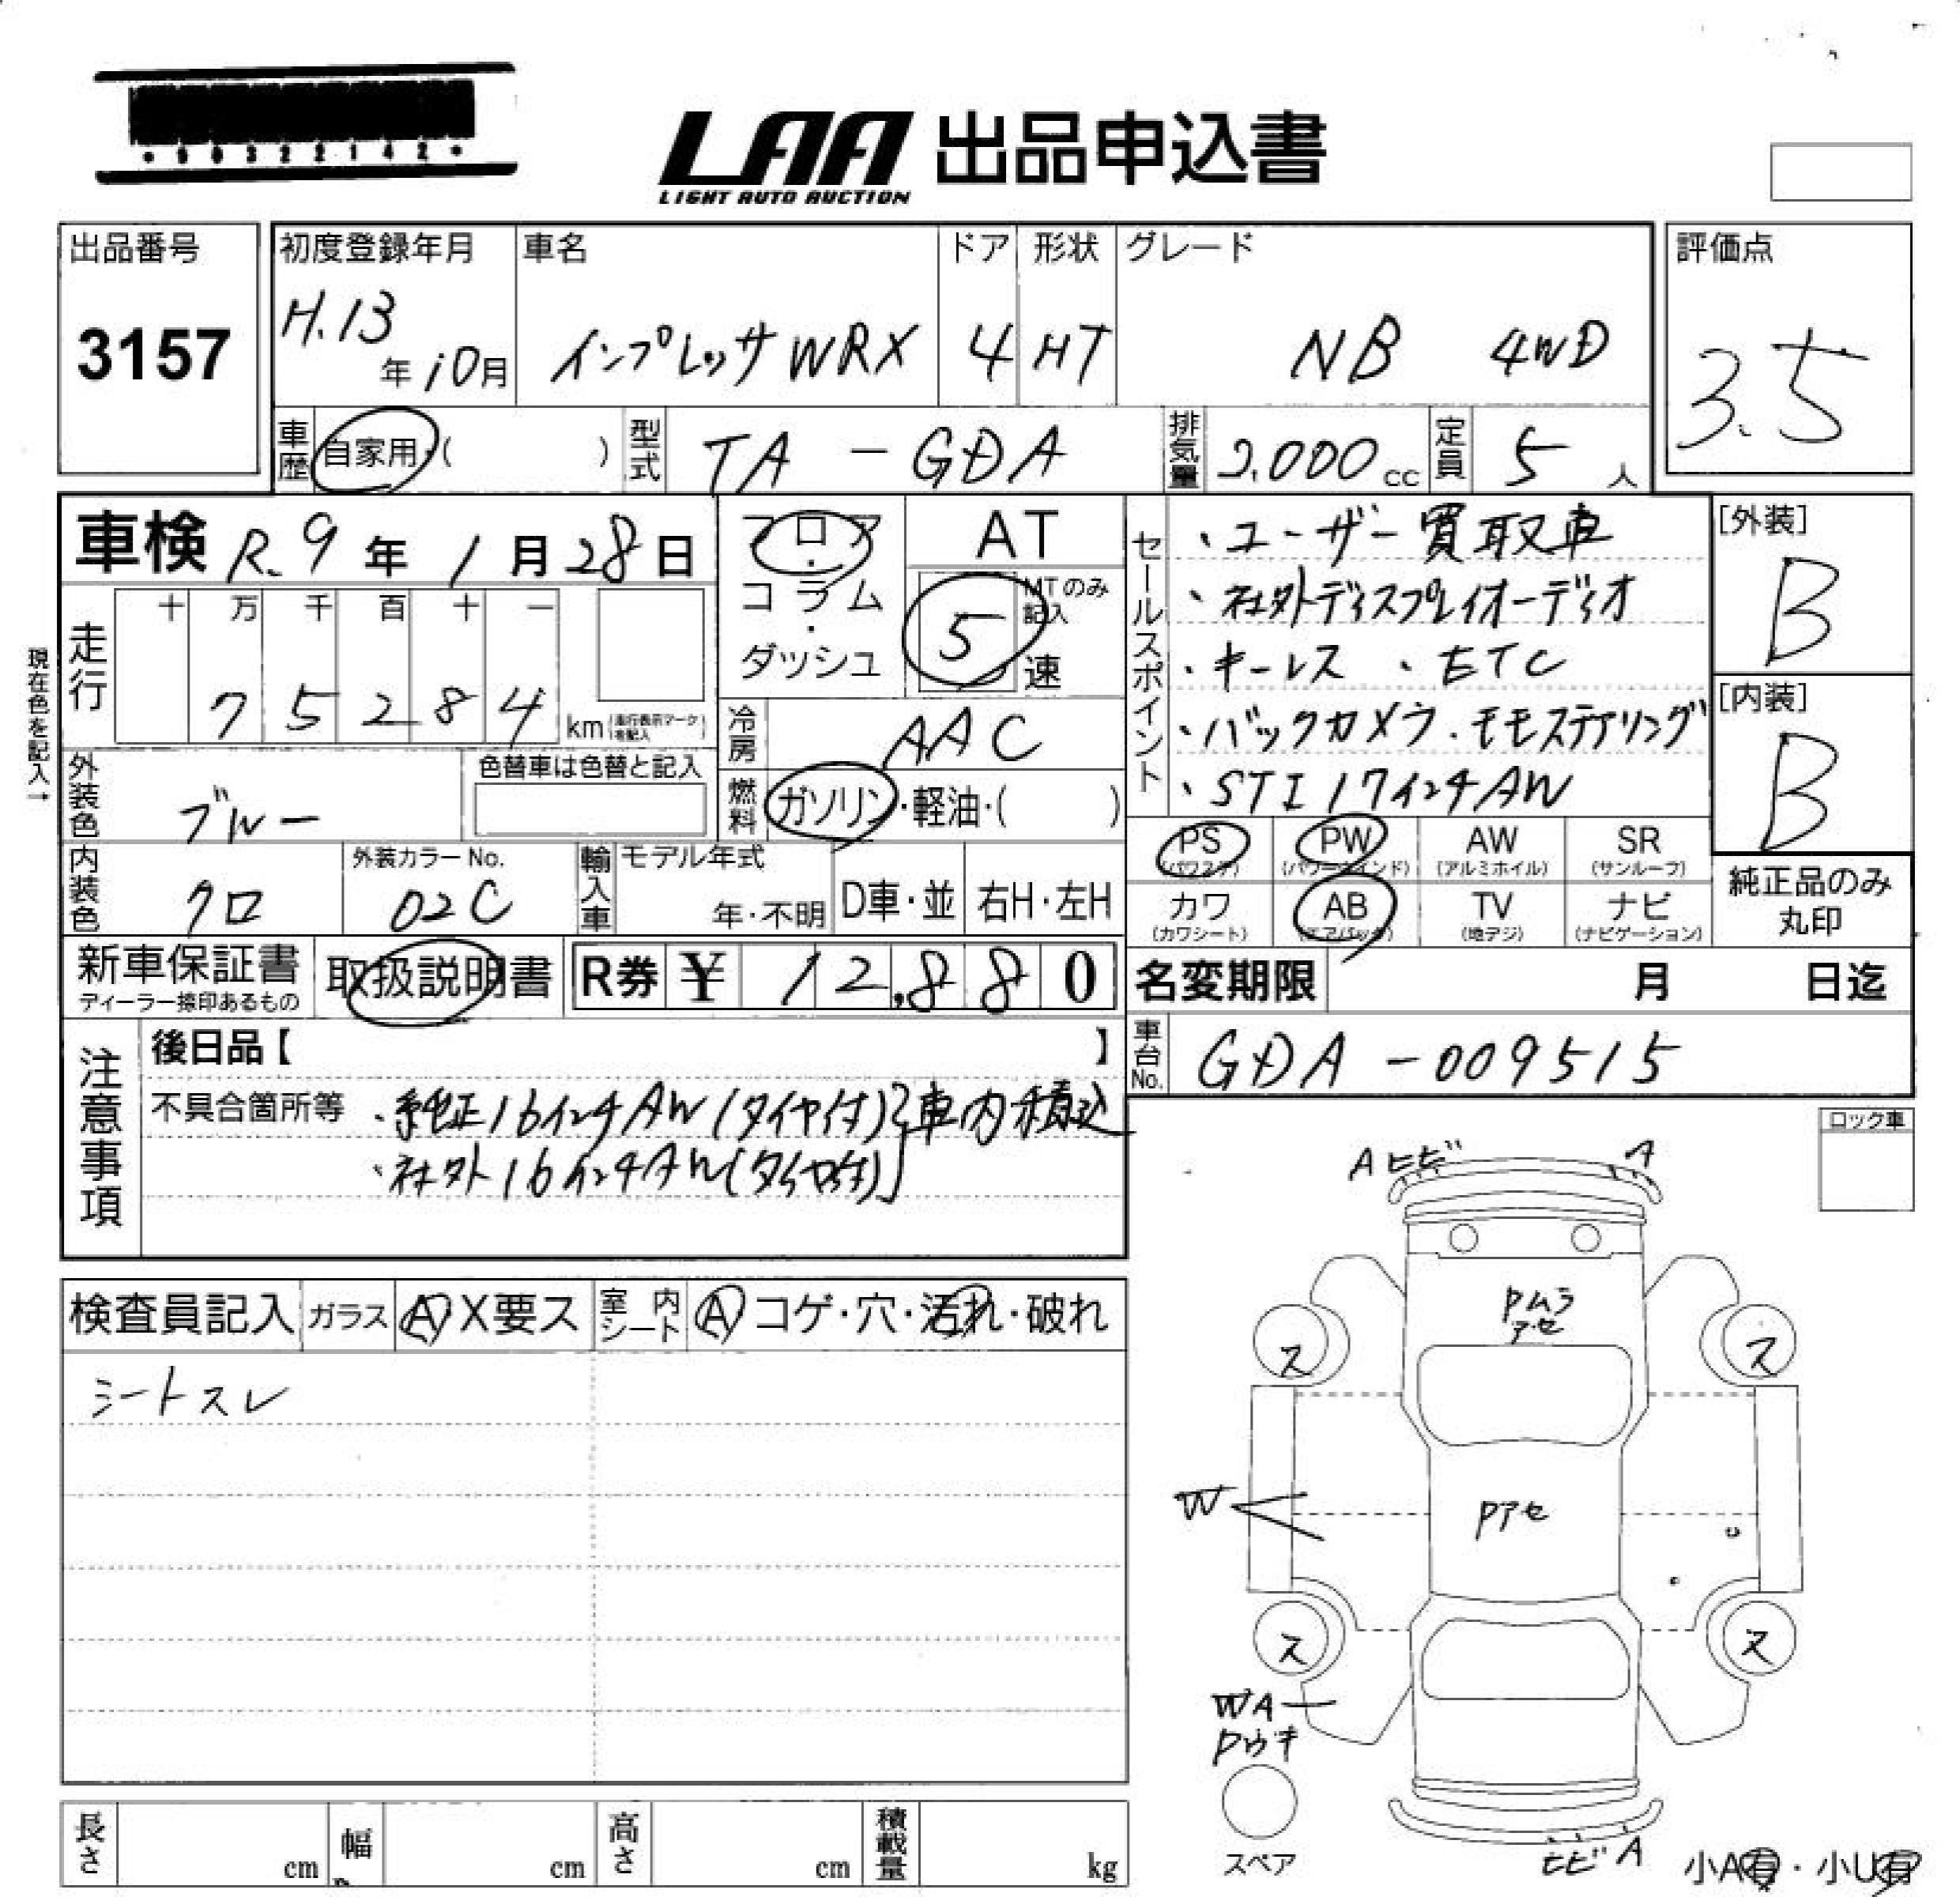 LAA 出品申込書
LIGHT AUTO AUCTION
出品番号
3157
初度登録年月
H.13年10月
車名
インプレッサWRX
ドア
4
形状
HT
グレード
NB 4WD
評価点
3.5
車歴
自家用・( )
型式
TA-GDA
排気量
2,000cc
定員
5人
車検 R.9年1月28日
フロア・コラム・ダッシュ
AT
MTのみ記入
5速
走行
十 万 千 百 十 一
7 5 2 8 4 km
(走行表示マークを記入)
冷房
AAC
燃料
ガソリン・軽油・( )
現在色を記入→
外装色
ブルー
色替車は色替と記入
内装色
クロ
外装カラーNo.
02C
輸入車
モデル年式
年・不明
D車・並
右H・左H
セールスポイント
・ユーザー買取車
・社外ディスプレイオーディオ
・キーレス ・ETC
・バックカメラ・モモステアリング
・STI 17インチAW
[外装]
B
[内装]
B
PS (パワステ)
PW (パワーウインド)
AW (アルミホイル)
SR (サンルーフ)
カワ (カワシート)
AB (エアバック)
TV (地デジ)
ナビ (ナビゲーション)
純正品のみ
丸印
新車保証書
ディーラー捺印あるもの
取扱説明書
R券 ¥ 12,880
名変期限 月 日迄
車台No.
GDA-009515
注意事項
後日品【 】
不具合箇所等
・純正16インチAW(タイヤ付)}車内積込
・社外16インチAW(タイヤ付)
ロック車
検査員記入
ガラス
A X要ス
室内シート
A コゲ・穴・汚れ・破れ
シートスレ
Aヒビ
A
Pムラ
アセ
ス
ス
W
Pアセ
ス
ス
WA
Pウキ
スペア
ヒビ A
小A有・小U有
長さ cm
幅 cm
高さ cm
積載量 kg